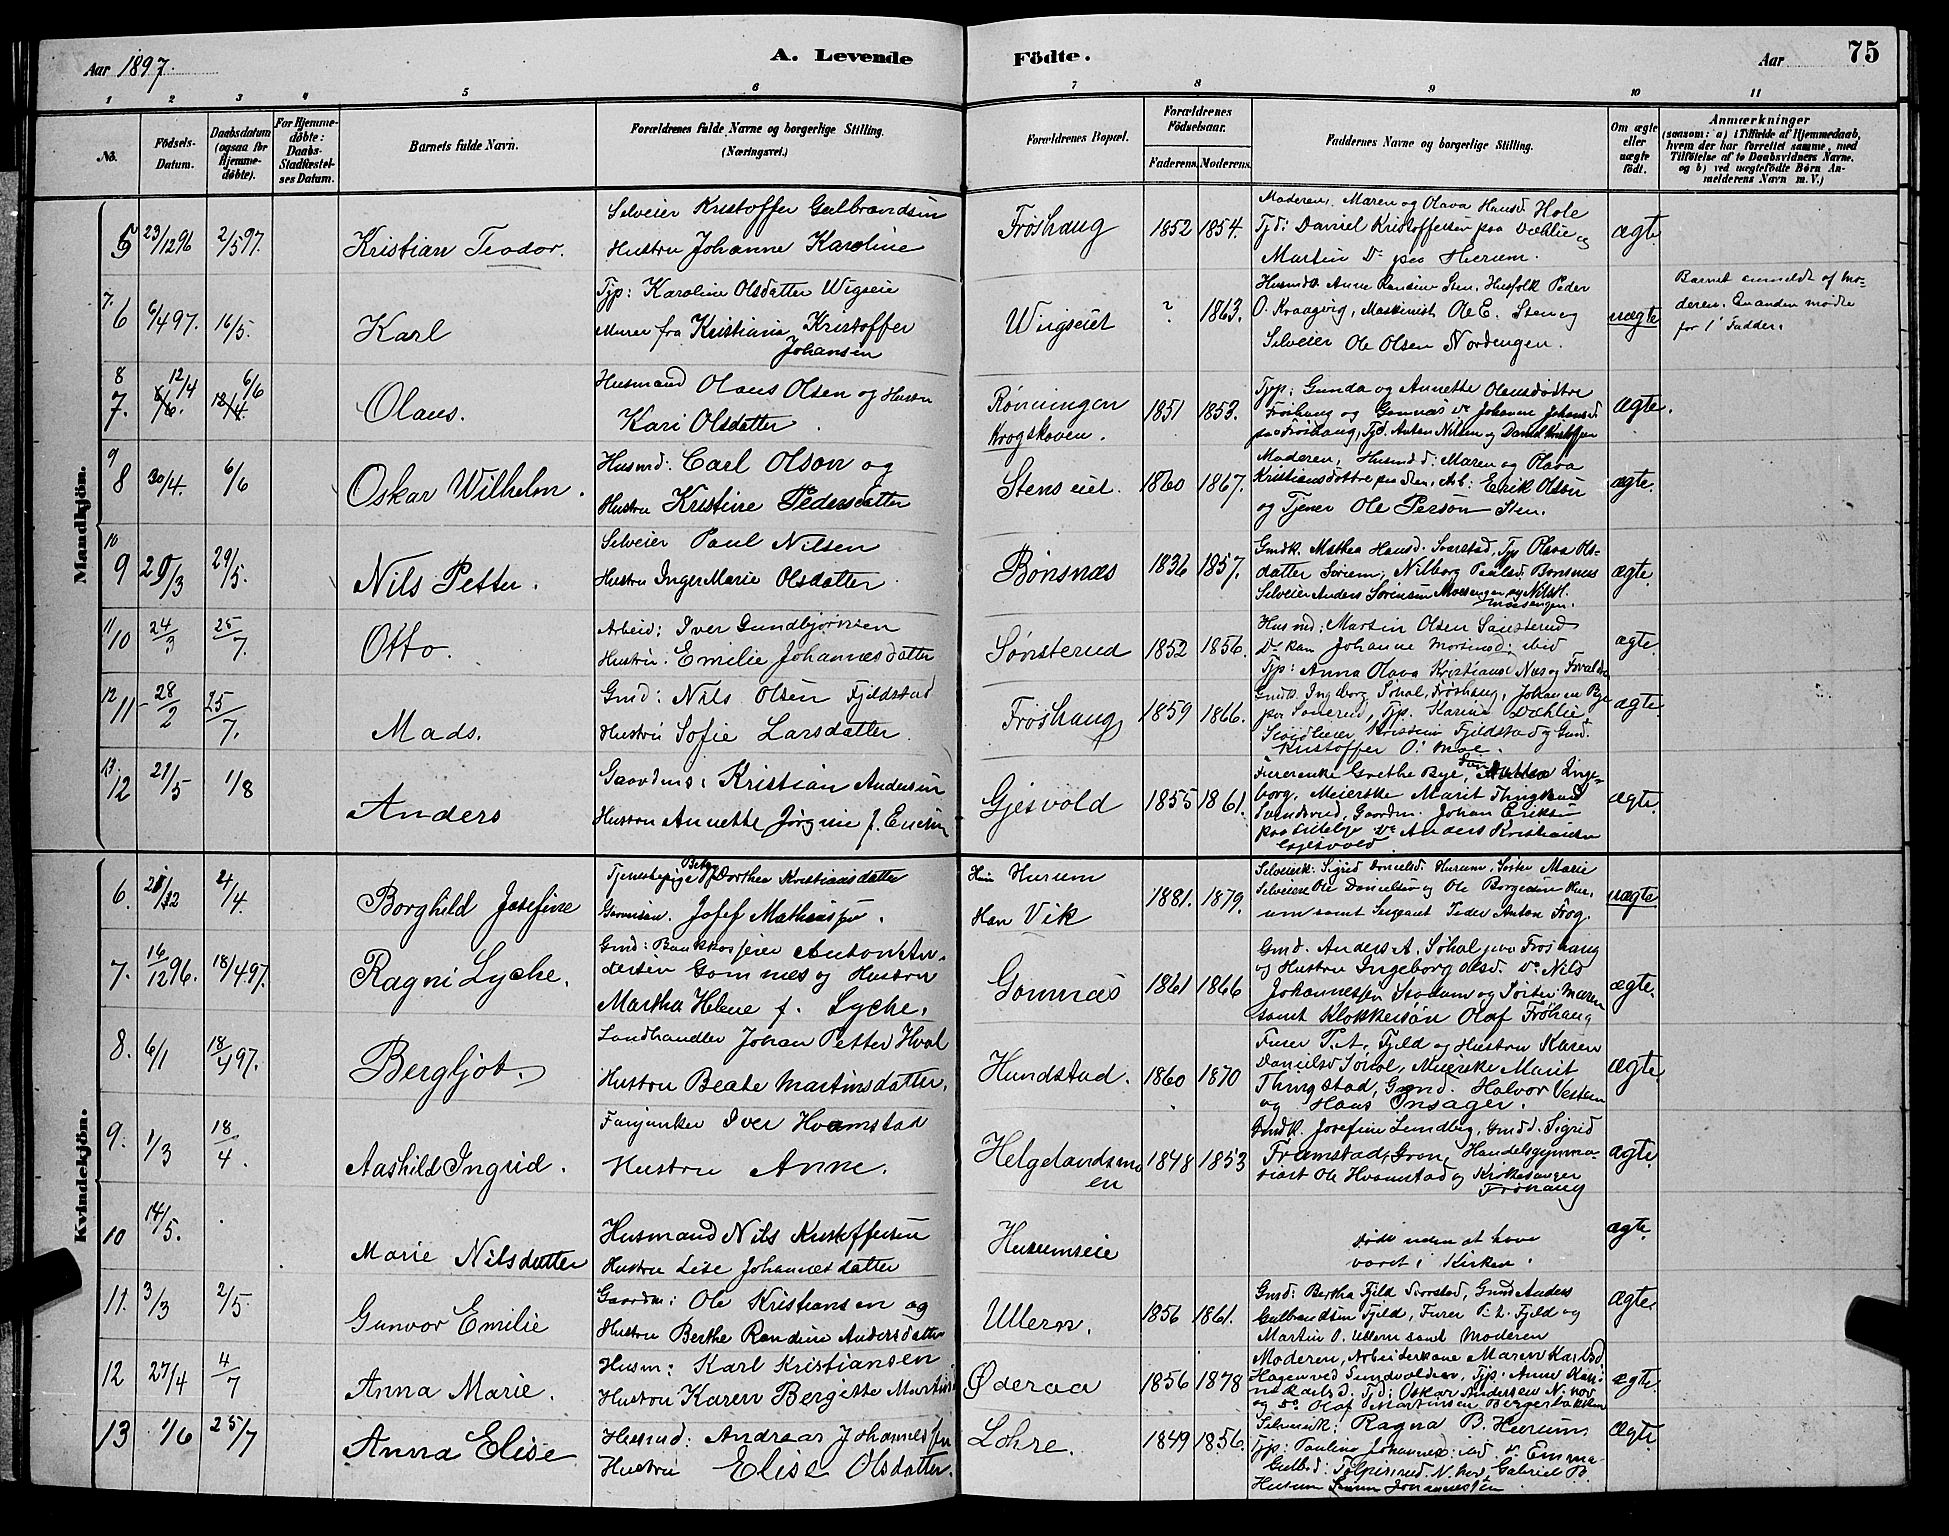 Aar 1897.
A. Levende
Fødte.
Aar
75
1 2 3 4 5 6 7 8 9 10 11
No.
Fødsels-
Datum.
Daabsdatum
(ogsaa for
Hjemme-
døbte).
For Hjemme-
døbte:
Daabs-
Stadfæstel-
ses Datum.
Barnets fulde Navn.
Forældrenes fulde Navne og borgerlige Stilling.
(Næringsvei.)
Forældrenes Bopæl.
Forældrenes
Fødselsaar.
Faderens. Moderens.
Faddernes Navne og borgerlige Stilling.
Om ægte
eller
uægte
født.
Anmærkninger
(saasom: a) i Tilfælde af Hjemmedaab,
hvem der har forrettet samme, med
Tilføielse af to Daabsvidners Navne.
og b) ved uægtefødte Børn An-
melderens Navn m. V.)
Mandkjön.
5 23/12 96 2/5 97. Kristian Teodor.
Selveier Kristoffer Gulbrandsen
Hustru Johanne Karoline
Frøshaug 1852 1854.
Moderen, Maren og Olava Hansd. Hole
Tjd: Daniel Kristoffersen paa Dæhlie og
Martin Do paa Hurum.
ægte.
7. 6 6/4 97. 16/5. Karl
Tjp: Karoline Olsdatter Wigseie
Murer fra Kristiania, Kristoffer
Johansen
Wiigseiet ? 1863.
O. Kraagvig, Maskinist Ole E. Sten og
Selveier Ole Olsen Nordengen.
uægte
Barnet anmeldt af Mo-
deren. En anden mødte
for 1 Fadder.
8 7. 12/4 6/6 Olaus.
Husmand Olaus Olsen og Hustru
Kari Olsdatter
Rønningen
Krogskoven. 1851 1853.
Tjp: Gunda og Annette Olausdøttre
Frøshaug og Gomnæs Do Johanne Johansd.
paa Frøshaug, Tjd. Anton Nilsen og Daniel Kristoffersen
ægte.
9 8 30/4. 6/6 Oskar Wilhelm.
Husmd: Carl Olson og
Hustru Kristine Pedersdatter
Stenseiet. 1860 1867.
Moderen, Husmd d. Maren og Olava
Kristiansdøttre paa Sten, Arb: Erik Olson
og Tjener Ole Person Sten.
ægte.
10 9 29/3 29/5. Nils Petter.
Selveier Paul Nilsen
Hustru Inger Marie Olsdatter.
Bønsnæs 1836 1857.
Gmdk. Mathea Hansd. Svarstad, Tjp Olava Ols-
datter Sørum, Nilborg Paulsd. Bønsnæs
Selveier Anders Sørensen Moesengen og Nils H.
Moesengen.
ægte.
11 10 24/3 25/7. Otto.
Arbeid: Iver Gundbjørnsen
Hustru: Emilie Johannesdatter
Sønsterud 1852 1856.
Husmd: Martin Olsen Sønsterud
Do kan Johanne Mortensd: ibid
Tjp: Anna Olava Kristiansd Næs og Forældre
ægte.
12 11 28/2 25/7. Mads.
Gmd: Nils Olsen Fjeldstad
Hustru Sofie Larsdatter.
Frøshaug 1859 1866.
Gmdk. Ingeborg Søhol, Frøshaug, Johanne Bye
paa Sonerud, Tjp. Karine Dæhlie
Kristian Fjeldstad og Gmd.
Kristoffer O. Moe.
ægte.
13. 12 21/5 1/8 Anders
Gaardms: Kristian Andersen
Hustru Annette Jørgine f. Ericksen
Gjesvold 1855 1861.
Furerenke Grethe Bye, Inge-
borg, Meierske Marit Thingstad
Svendsrud, Gaardm. Johan Eriksen
Do Anders Kristiansen
Gjesvold.
ægte.
Kvindekjön.
6. 21/12 4/4. Borghild Josefine
Tjenestepige Dorthea Kristiansdatter
Josef Mathiassen.
Hun Hurum
Han Vik 1881. 1879.
Selveierk: Sigrid Danielsd. Hurum, Søster Marie
Selveiere Ole Danielsen og Ole Borgersen Hur-
um samt Sergeant Peder Anton Frog.
uægte
7. 16/12 96. 18/4 97. Ragni Lyche.
Gmd: Bankkasserer Anton An-
dersen Gomnes og Hustru
Martha Helene f. Lyche.
Gomnæs 1861 1866
Gmd. Anders A. Søhol paa Frøshaug
og Hustru Ingeborg Olsd. Do Nils
Johannessen Stadum og Søster Maren
samt Klokkersøn Olaf Frøhaug
ægte.
8. 6/1 18/4 97. Bergljot.
Landhandler Johan Petter Hval
Hustru Beate Martinsdatter.
Hundstad. 1860 1870
Furer P. A. Fjeld og Hustru Karen
Danielsd Søhol, Meierske Marit
Thingstad, Gmd. Halvor Vestern
og Hans Onsager.
ægte.
9. 1/3 18/4. Aashild Ingrid.
Fanejunker Iver Hvamstad
Hustru Anne.
Helgelandsmo
en 1848 1853
Gmdk. Josefine Lundby, Gmd d. Sigrid
Framstad, Gran, Handelsgymna-
siast Ole Hvamstad og Kirkesanger
Frøhaug
ægte.
10 14/5. Marie Nilsdatter
Husmand Nils Kristoffersen
Hustru Lise Johannesdatter
Hurumseie
Døde uden at have
været i Kirken.
ægte.
11. 3/3 2/5. Gunvor Emilie
Gaardm: Ole Kristiansen og
Hustru Berthe Randine Andersdatter
Ullern. 1856 1861.
Gmd: Bertha Fjeld Svarstad, Gmd Anders
Gulbrandsen Fjeld, Furer P. A. Fjeld og
Martin O. Ullern samt Moderen
ægte.
12 27/4 4/7 Anna Marie.
Husm: Karl Kristiansen
Hustru Karen Bergitte Martins
Øderaa 1856 1878
Moderen, Arbeiderkone Maren Karlsd
Hagen ved Sundvolden, Tjp. Anne Kari-
ne Karlsd. Tjd: Oskar Andersen N. hov
og Do Olaf Martinsen Bergerbakken
ægte.
13 1/6 25/7 Anna Elise
Husmd: Andreas Johannessen
Hustru Elise Olsdatter.
Lohre. 1849 1856.
Selveierk: Ragna B. Hurum
Tjp: Pauline Johannesd: Do Emma
N. hov, Gabriel B.
Hurum Johannessen.
ægte.